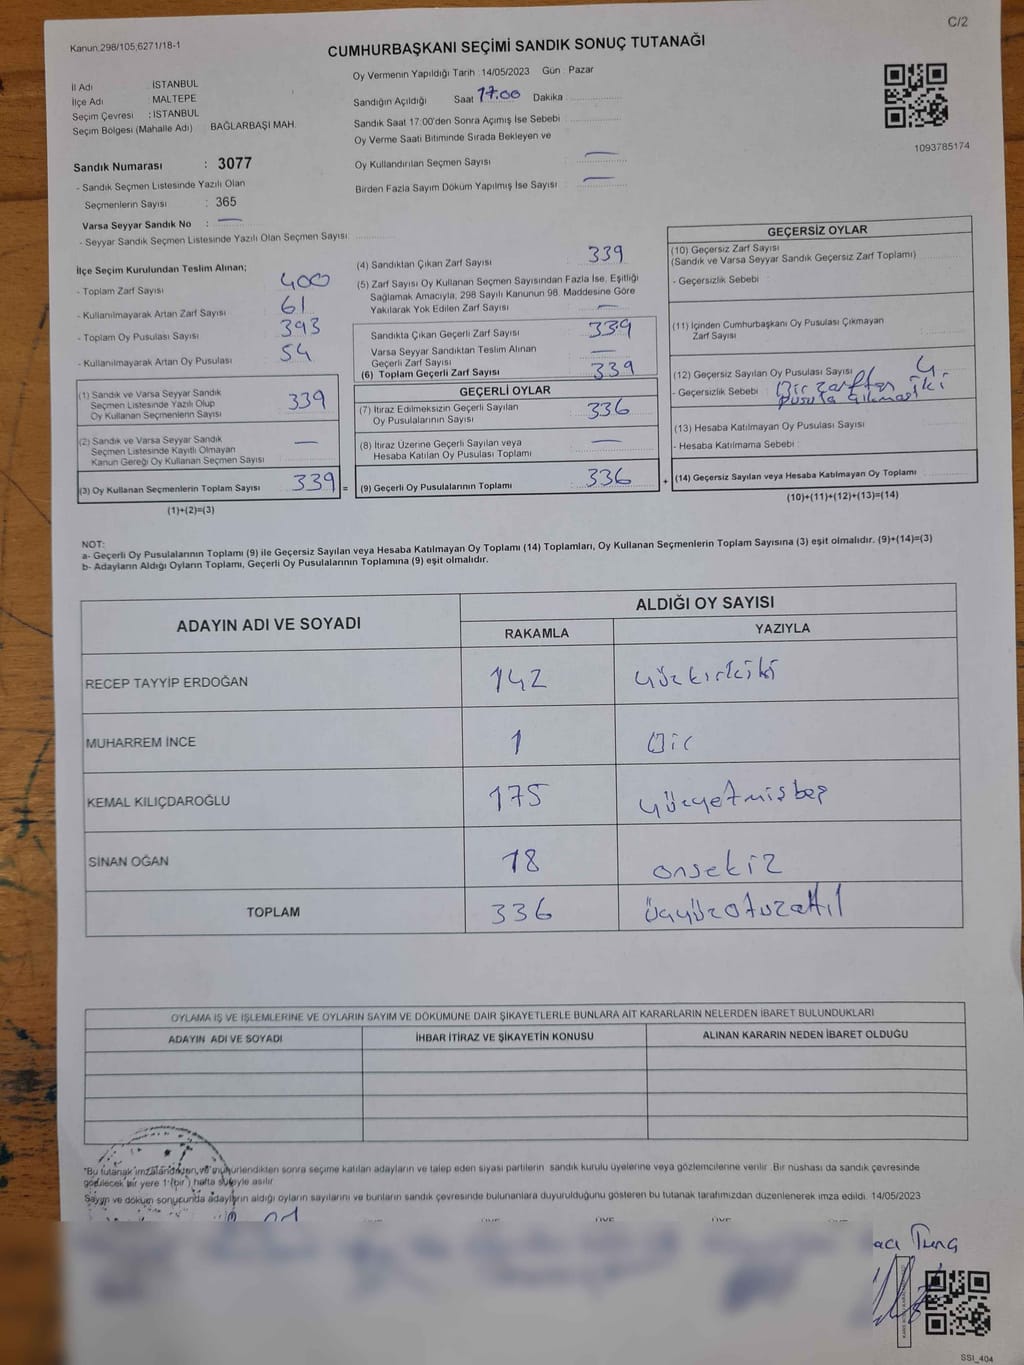 C/2
Kanun;298/105;6271/18-1
CUMHURBAŞKANI SEÇİMİ SANDIK SONUÇ TUTANAĞI
İl Adı : İSTANBUL
İlçe Adı : MALTEPE
Seçim Çevresi : İSTANBUL
Seçim Bölgesi (Mahalle Adı) BAĞLARBAŞI MAH.
Sandık Numarası : 3077
- Sandık Seçmen Listesinde Yazılı Olan
Seçmenlerin Sayısı : 365
Varsa Seyyar Sandık No : —
- Seyyar Sandık Seçmen Listesinde Yazılı Olan Seçmen Sayısı:
Oy Vermenin Yapıldığı Tarih : 14/05/2023 Gün : Pazar
Sandığın Açıldığı Saat 17.00 Dakika
Sandık Saat 17:00'den Sonra Açımış İse Sebebi
Oy Verme Saati Bitiminde Sırada Bekleyen ve
Oy Kullandırılan Seçmen Sayısı : —
Birden Fazla Sayım Döküm Yapılmış İse Sayısı : —
1093785174
İlçe Seçim Kurulundan Teslim Alınan;
- Toplam Zarf Sayısı 400
- Kullanılmayarak Artan Zarf Sayısı : 61
- Toplam Oy Pusulası Sayısı : 393
- Kullanılmayarak Artan Oy Pusulası 54
(1) Sandık ve Varsa Seyyar Sandık
Seçmen Listesinde Yazılı Olup
Oy Kullanan Seçmenlerin Sayısı 339
(2) Sandık ve Varsa Seyyar Sandık
Seçmen Listesinde Kayıtlı Olmayan
Kanun Gereği Oy Kullanan Seçmen Sayısı —
(3) Oy Kullanan Seçmenlerin Toplam Sayısı 339 =
(1)+(2)=(3)
(4) Sandıktan Çıkan Zarf Sayısı : 339
(5) Zarf Sayısı Oy Kullanan Seçmen Sayısından Fazla İse, Eşitliği
Sağlamak Amacıyla, 298 Sayılı Kanunun 98. Maddesine Göre
Yakılarak Yok Edilen Zarf Sayısı : —
Sandıkta Çıkan Geçerli Zarf Sayısı : 339
Varsa Seyyar Sandıktan Teslim Alınan
Geçerli Zarf Sayısı —
(6) Toplam Geçerli Zarf Sayısı : 339
GEÇERLİ OYLAR
(7) İtiraz Edilmeksizin Geçerli Sayılan
Oy Pusulalarının Sayısı : 336
(8) İtiraz Üzerine Geçerli Sayılan veya
Hesaba Katılan Oy Pusulası Toplamı —
(9) Geçerli Oy Pusulalarının Toplamı : 336 +
GEÇERSİZ OYLAR
(10) Geçersiz Zarf Sayısı
(Sandık ve Varsa Seyyar Sandık Geçersiz Zarf Toplamı)
- Geçersizlik Sebebi :
(11) İçinden Cumhurbaşkanı Oy Pusulası Çıkmayan
Zarf Sayısı
(12) Geçersiz Sayılan Oy Pusulası Sayısı : 4
- Geçersizlik Sebebi : Bir zarftan iki
pusula çıkması
(13) Hesaba Katılmayan Oy Pusulası Sayısı :
- Hesaba Katılmama Sebebi :
(14) Geçersiz Sayılan veya Hesaba Katılmayan Oy Toplamı
(10)+(11)+(12)+(13)=(14)
NOT:
a- Geçerli Oy Pusulalarının Toplamı (9) ile Geçersiz Sayılan veya Hesaba Katılmayan Oy Toplamı (14) Toplamları, Oy Kullanan Seçmenlerin Toplam Sayısına (3) eşit olmalıdır. (9)+(14)=(3)
b- Adayların Aldığı Oyların Toplamı, Geçerli Oy Pusulalarının Toplamına (9) eşit olmalıdır.
ADAYIN ADI VE SOYADI
ALDIĞI OY SAYISI
RAKAMLA YAZIYLA
RECEP TAYYİP ERDOĞAN 142 yüzkırkiki
MUHARREM İNCE 1 Bir
KEMAL KILIÇDAROĞLU 175 yüzyetmişbeş
SİNAN OĞAN 18 onsekiz
TOPLAM 336 üçyüzotuzaltı
OYLAMA İŞ VE İŞLEMLERİNE VE OYLARIN SAYIM VE DÖKÜMÜNE DAİR ŞİKAYETLERLE BUNLARA AİT KARARLARIN NELERDEN İBARET BULUNDUKLARI
ADAYIN ADI VE SOYADI İHBAR İTİRAZ VE ŞİKAYETİN KONUSU ALINAN KARARIN NEDEN İBARET OLDUĞU
*Bu tutanak imzalandıktan ve mühürlendikten sonra seçime katılan adayların ve talep eden siyasi partilerin sandık kurulu üyelerine veya gözlemcilerine verilir. Bir nüshası da sandık çevresinde
görülecek bir yere 1 (bir) hafta süreyle asılır
Sayım ve döküm sonucunda adayların aldığı oyların sayılarını ve bunların sandık çevresinde bulunanlara duyurulduğunu gösteren bu tutanak tarafımızdan düzenlenerek imza edildi. 14/05/2023
SSI_404